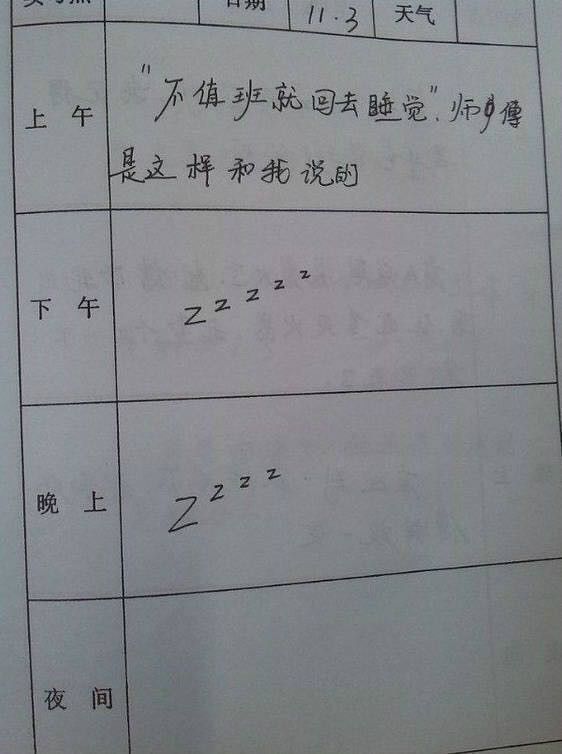 日期 11.3 天气
上午 "不值班就回去睡觉". 师傅
是这样和我说的
下午 z z z z z
晚上 Z z z z
夜间